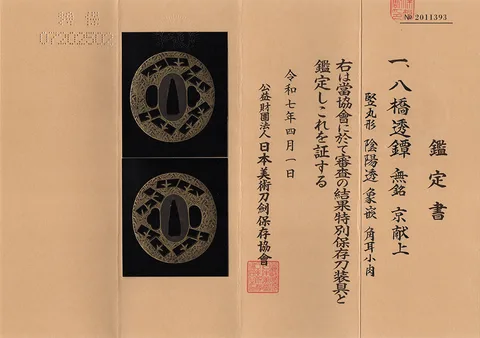 № 2011393
鑑定書
一、八橋透鐔 無銘 京献上
竪丸形 陰陽透 象嵌 角耳小肉
右は當協會に於て審査の結果特別保存刀装具と
鑑定しこれを証する
令和七年四月一日
公益財團法人 日本美術刀劍保存協會